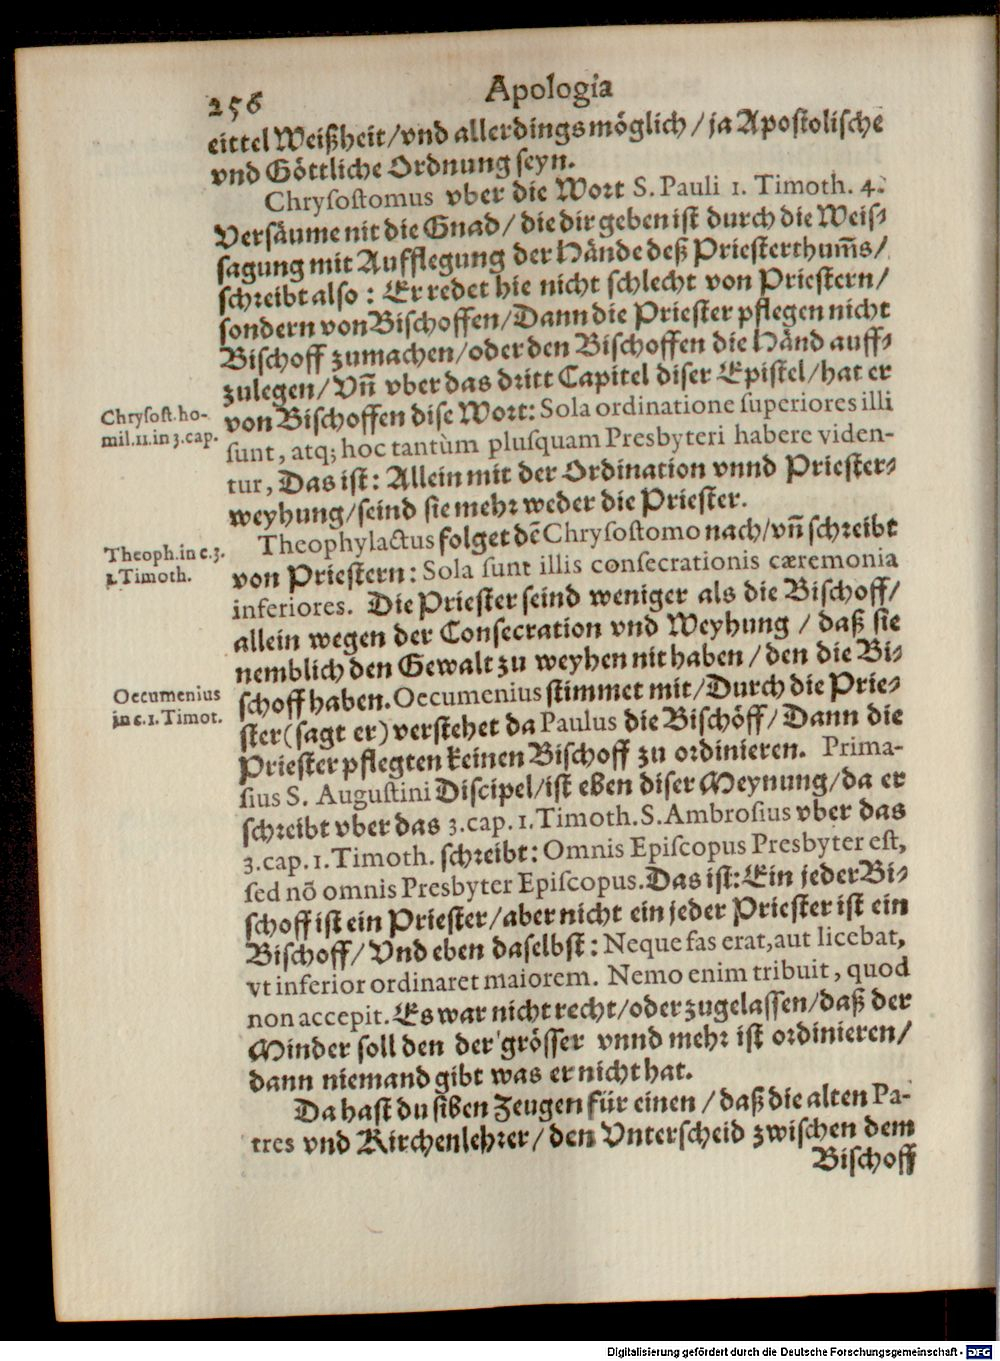 256
Apologia
eittel Weißheit/vnd allerdings möglich/ja Apostolische
vnd Göttliche Ordnung seyn.
Chrysostomus vber die Wort S. Pauli 1. Timoth. 4.
Versäume nit die Gnad/die dir geben ist durch die Weis-
sagung mit Aufflegung der Hände deß Priesterthum̃s/
schreibt also: Er redet hie nicht schlecht von Priestern/
sondern von Bischoffen/Dann die Priester pflegen nicht
Bischoff zumachen/oder den Bischoffen die Händ auff-
zulegen/Vñ vber das dritt Capitel diser Epistel/hat er
Chrysost. ho-
mil. 11. in 3. cap.
von Bischoffen dise Wort: Sola ordinatione superiores illi
sunt, atq; hoc tantùm plusquam Presbyteri habere viden-
tur, Das ist: Allein mit der Ordination vnnd Priester-
weyhung/seind sie mehr weder die Priester.
Theoph. in c. 3.
1. Timoth.
Theophylactus folget dẽ Chrysostomo nach/vñ schreibt
von Priestern: Sola sunt illis consecrationis cæremonia
inferiores. Die Priester seind weniger als die Bischoff/
allein wegen der Consecration vnd Weyhung / daß sie
nemblich den Gewalt zu weyhen nit haben/den die Bi-
Oecumenius
in c. 1. Timot.
schoff haben. Oecumenius stimmet mit/Durch die Prie-
ster (sagt er) verstehet da Paulus die Bischöff/Dann die
Priester pflegten keinen Bischoff zu ordinieren. Prima-
sius S. Augustini Discipel/ist eben diser Meynung/da er
schreibt vber das 3. cap. 1. Timoth. S. Ambrosius vber das
3. cap. 1. Timoth. schreibt: Omnis Episcopus Presbyter est,
sed nõ omnis Presbyter Episcopus. Das ist: Ein jeder Bi-
schoff ist ein Priester/aber nicht ein jeder Priester ist ein
Bischoff/Vnd eben daselbst: Neque fas erat, aut licebat,
vt inferior ordinaret maiorem. Nemo enim tribuit, quod
non accepit. Es war nicht recht/oder zugelassen/daß der
Minder soll den der grösser vnnd mehr ist ordinieren/
dann niemand gibt was er nicht hat.
Da hast du siben Zeugen für einen/daß die alten Pa-
tres vnd Kirchenlehrer/den Vnterscheid zwischen dem
Bischoff
Digitalisierung gefördert durch die Deutsche Forschungsgemeinschaft - DFG